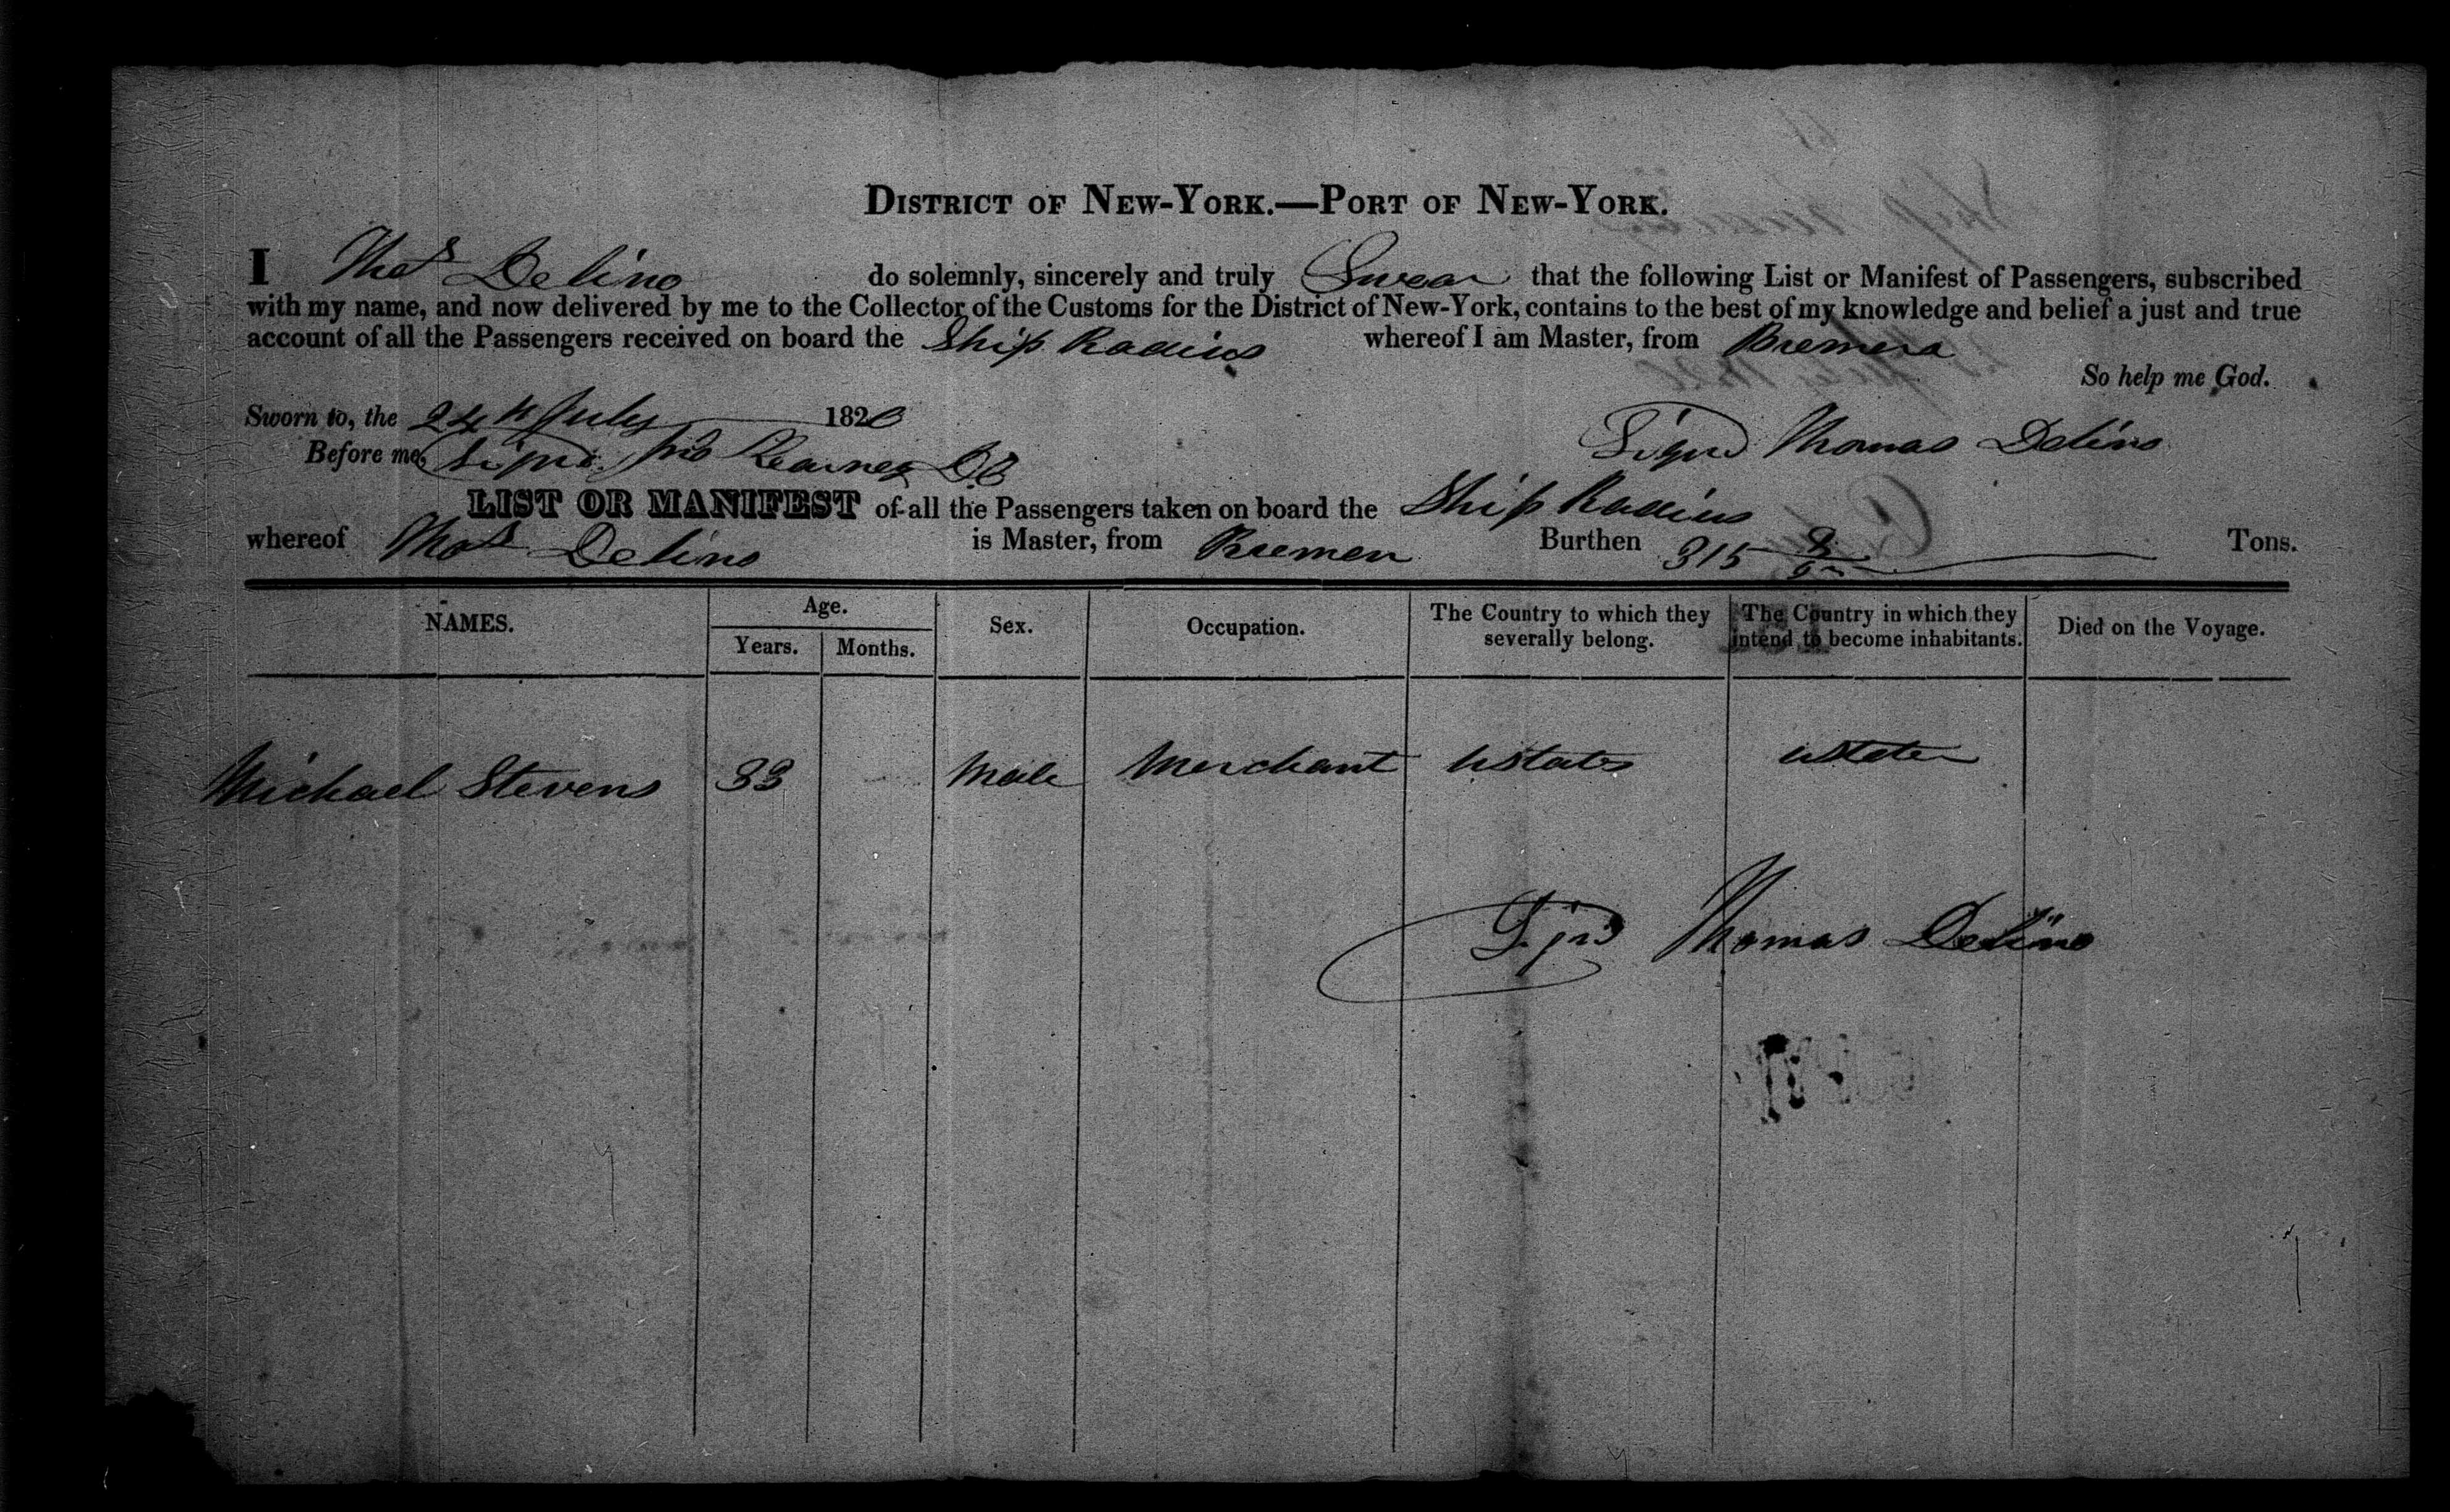 DISTRICT OF NEW-YORK.—PORT OF NEW-YORK.
I Thos Delino do solemnly, sincerely and truly Swear that the following List or Manifest of Passengers, subscribed
with my name, and now delivered by me to the Collector of the Customs for the District of New-York, contains to the best of my knowledge and belief a just and true
account of all the Passengers received on board the Ship Radius whereof I am Master, from Bremen
So help me God.
Sworn to, the 24th July 182
Before me, Signd Jno Kearney DC
Signd Thomas Delino
LIST OR MANIFEST of all the Passengers taken on board the Ship Radius
whereof Thos Delino is Master, from Bremen Burthen 315 Tons.
NAMES. Age. Years. Months. Sex. Occupation. The Country to which they severally belong. The Country in which they intend to become inhabitants. Died on the Voyage.
Michael Stevens 33 Male Merchant UStates UStates
Signd Thomas Delino